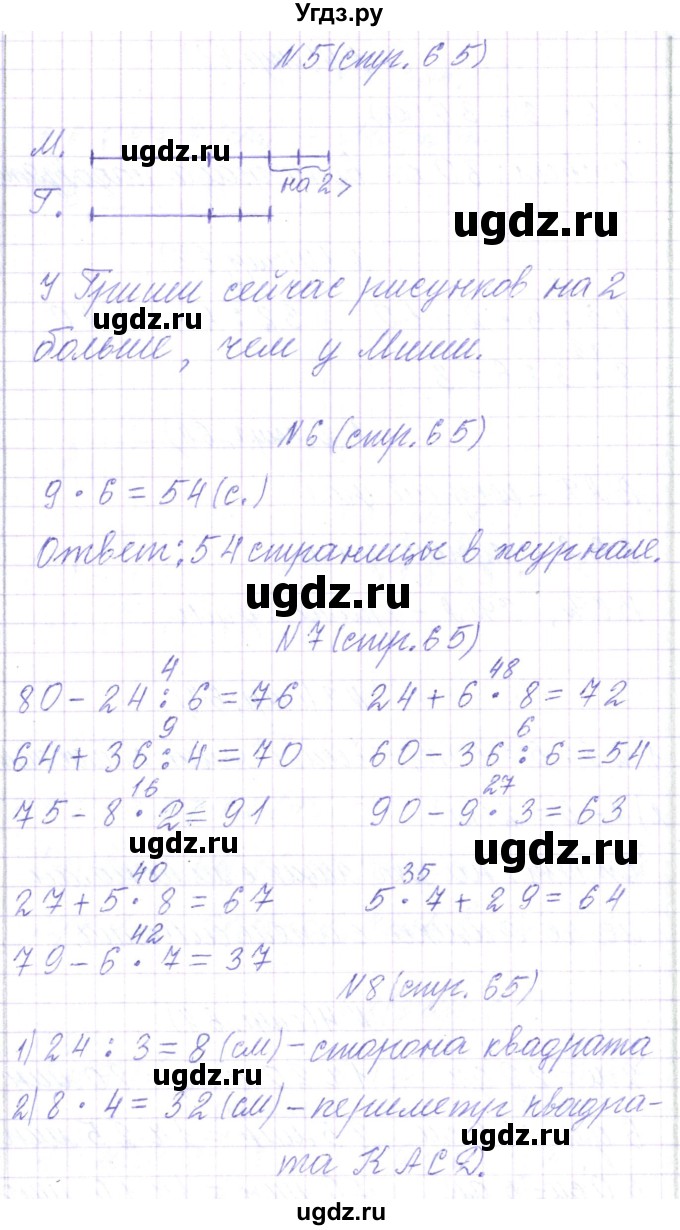 Угдз.ру
N5 (стр. 65)
М.
ugdz.ru
на 2 >
Г.
ugdz.ru
У Гриши сейчас рисунков на 2
ugdz.ru
больше, чем у Миши.
N6 (стр. 65)
9 · 6 = 54 (с.)
Ответ: 54 страницы в журнале.
ugdz.ru
N7 (стр. 65)
4 48
80 - 24 : 6 = 76 24 + 6 · 8 = 72
9 6
64 + 36 : 4 = 70 60 - 36 : 6 = 54
16 27
75 - 8 · 2 = 91 90 - 9 · 3 = 63
ugdz.ru ugdz.ru
40 35
27 + 5 · 8 = 67 5 · 7 + 29 = 64
42
79 - 6 · 7 = 37
N8 (стр. 65)
1) 24 : 3 = 8 (см) - сторона квадрата
ugdz.ru
2) 8 · 4 = 32 (см) - периметр квадра-
ugdz.ru
та КАСД.
ugdz.ru